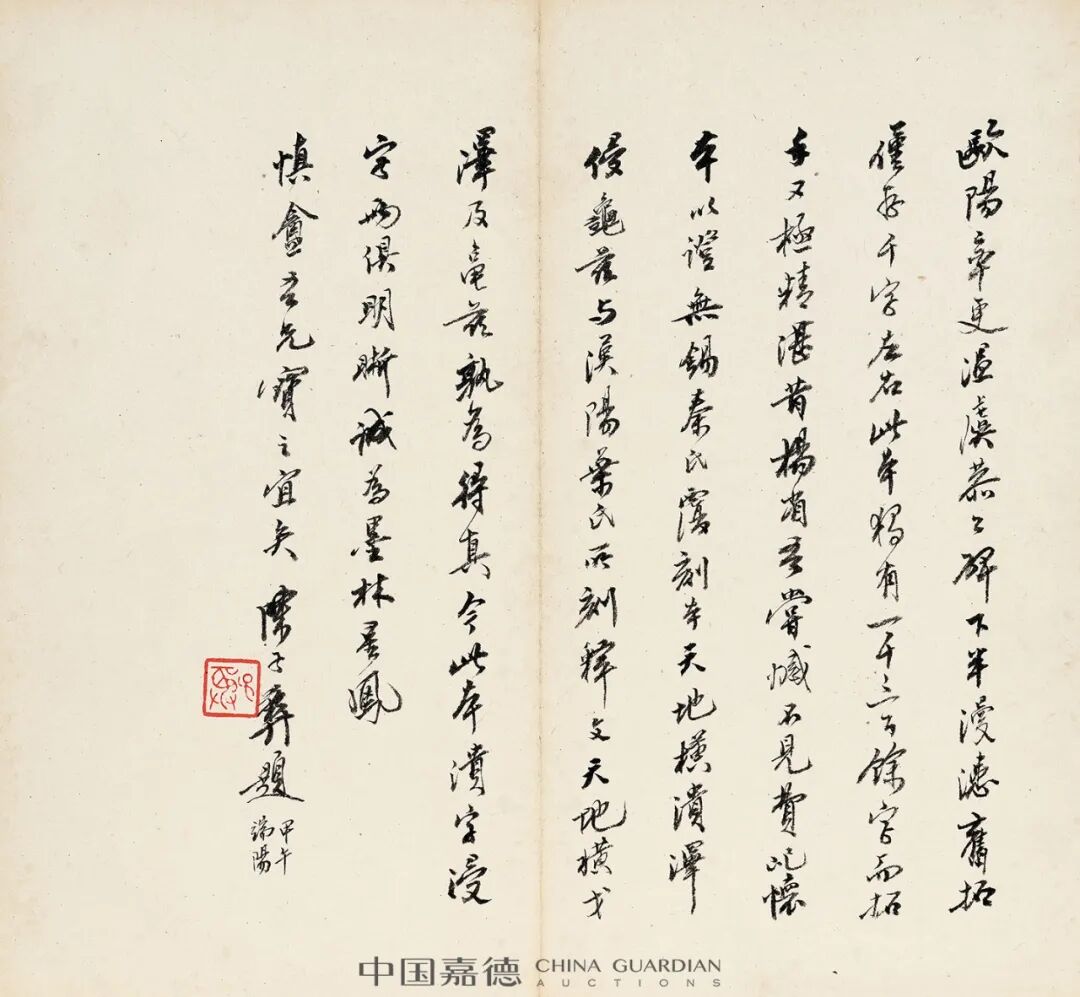 歐陽率更温虞恭公碑下半漫漶舊拓
僅存千字左右此本獨有一千三百餘字而拓
手又極精湛昔楊吾嘗憾不見費屺懷
本以證無錫秦氏覆刻本天地橫潰澤
侵龜茲与漢陽葉氏所刻釋文天地橫戈
澤及龜茲孰為得真今此本潰字浸
字兩俱明晰誠為墨林星鳳
慎盦吾兄寶之宜矣 陳子彝題
甲午
端陽
中国嘉德 CHINA GUARDIAN
AUCTIONS